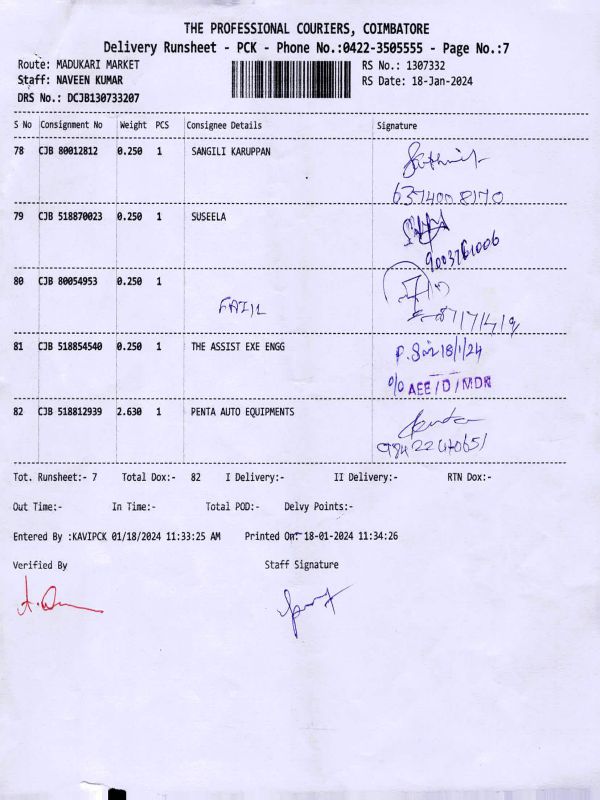 THE PROFESSIONAL COURIERS, COIMBATORE
Delivery Runsheet - PCK - Phone No.:0422-3505555 - Page No.:7
Route: MADUKARI MARKET RS No.: 1307332
Staff: NAVEEN KUMAR RS Date: 18-Jan-2024
DRS No.: DCJB130733207
S No Consignment No Weight PCS Consignee Details Signature
78 CJB 80012812 0.250 1 SANGILI KARUPPAN
79 CJB 518870023 0.250 1 SUSEELA
9003761006
80 CJB 80054953 0.250 1
81 CJB 518854540 0.250 1 THE ASSIST EXE ENGG
18/1/24
AEE/D/MDR
82 CJB 518812939 2.630 1 PENTA AUTO EQUIPMENTS
Tot. Runsheet:- 7 Total Dox:- 82 I Delivery:- II Delivery:- RTN Dox:-
Out Time:- In Time:- Total POD:- Delvy Points:-
Entered By :KAVIPCK 01/18/2024 11:33:25 AM Printed On: 18-01-2024 11:34:26
Verified By Staff Signature